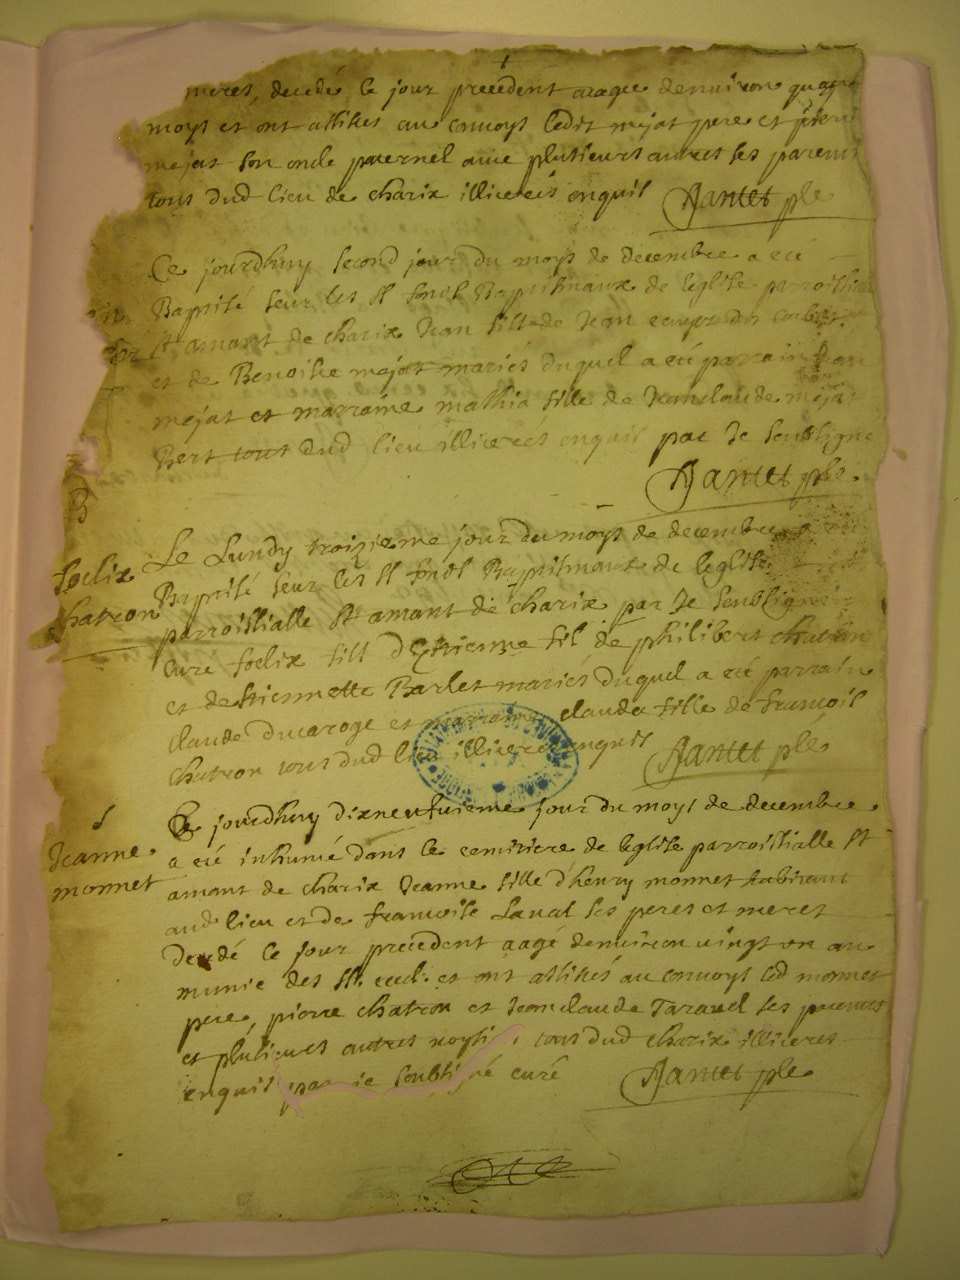 meres, decedé le jour precedent aagee denuiron quatre
moys et ont assistes au conuoys ledit mejat pere et pierre
mejat son oncle paternel auec plusieurs autres ses parens
tous dud lieu de charix illiteres enquis Jantet pbr
Ce jourdhuy second jour du moys de decembre a eté
Baptisé seur les st fonds Baptismaux de leglise parroissialle
St amant de charix Jean fils de Jean
et de Benoiste mejat mariés duquel a eté parrain Jean
mejat et marraine mathia fille de Jeanclaude mejat
Bert tous dud lieu illiteres enquis par Je soubsigné
Jantet pbr.
B
foelix
chatron
Le Lundy troizieme jour du moys de decembre a
Baptisé seur les st fonds Baptismaux de leglise
parroissialle St amant de charix par Je soubsigné
curé foelix fils d'Estienne fil de philibert chatron
et destiennette Barlet mariés duquel a eté parrain
claude ducaroge et marraine clauda fille de francois
chatron tous dud lieu illiteres enquis Jantet pbr
Jeanne
monnet
Ce jourdhuy dixneufuieme jour du moys de decembre
a eté inhumé dans le cemitiere de leglise parroissialle St
amant de charix Jeanne fille d'henry monnet habitant
aud lieu et de francoise Laual ses peres et meres
decedé le jour precedent aagé denuiron uingt un an
munie des st. et ont assistés au conuoys led monnet
pere, pierre chatron et Jeanclaude Tarauel ses parents
et plusieurs autres tous dud charix illiteres
enquis par je soubsigné curé Jantet pbr